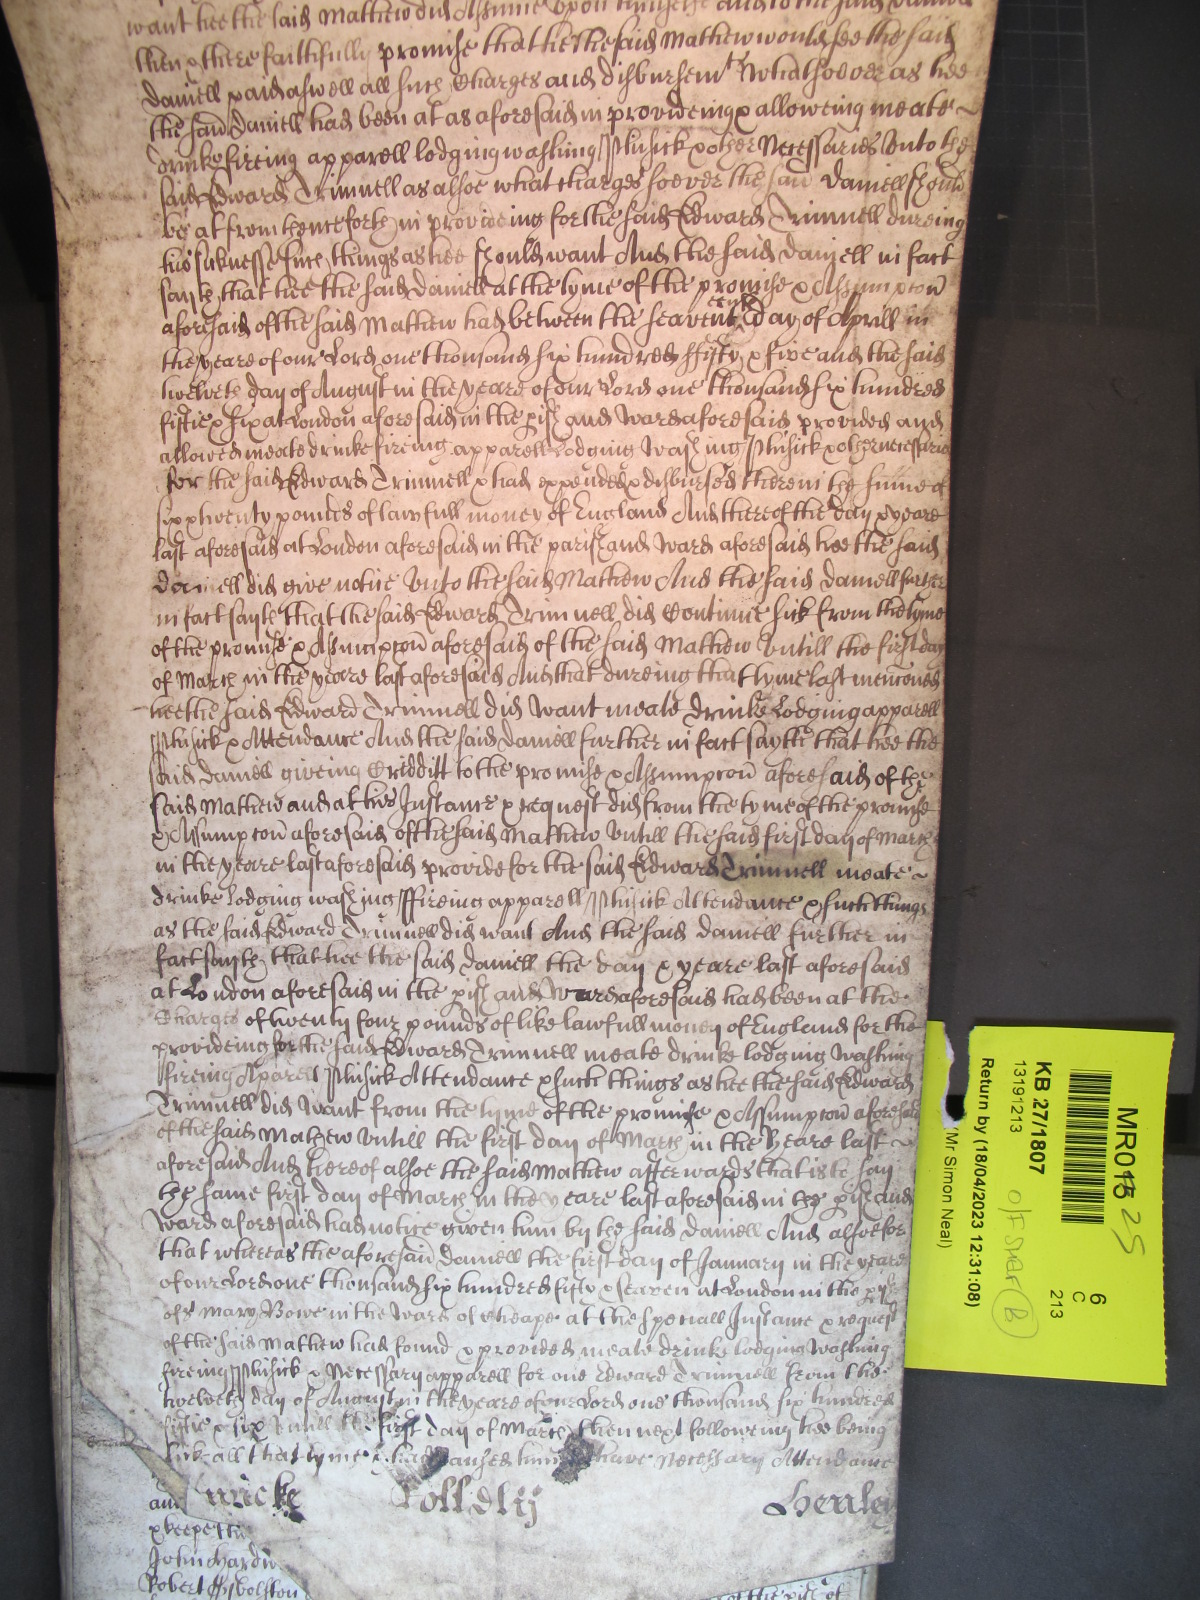 want hee the said Mathew did Assume upon himselfe and to the said Daniell
then & there faithfully promise that hee the said Mathew would see the said
Daniell paid aswell all such Charges and disbursemts whatsoever as hee
the said Daniell had been at as aforesaid in provideing & alloweing meate
drinke fireing apparell lodging washing Phisick & other Necessaries Unto the
said Edward Trimnell as alsoe what charges soever the said Daniell should
be at from thenceforth in provideing for the said Edward Trimnell dureing
his sicknesse such things as hee should want And the said Daniell in fact
sayth that hee the said Daniell at the tyme of the promise & Assumpcon
aforesaid of the said Mathew had between the seaventeenth day of Aprill in
the yeare of our Lord one thousand six hundred ffifty & five and the said
twelveth day of August in the yeare of our Lord one thousand six hundred
fiftie & six at London aforesaid in the pish and Ward aforesaid provided and
allowed meate drinke fireing apparell Lodging Washing Phisick & other necessaries
for the said Edward Trimnell & had expended & disbursed therein the summe of
six & twenty pounds of lawfull money of England And thereof the day & yeare
last aforesaid at London aforesaid in the parish and Ward aforesaid hee the said
Daniell did give notice Unto the said Mathew And the said Daniell further
in fact sayth that the said Edward Trimnell did Continue sick from the tyme
of the promise & Assumpcon aforesaid of the said Mathew Untill the first day
of March in the yeare last aforesaid And that dureing that tyme last menconed
hee the said Edward Trimnell did Want meate drinke Lodging apparell
Phisick & Attendance And the said Daniell further in fact sayth that hee the
said Daniell giveing Creditt to the promise & Assumpcon aforesaid of the
said Mathew and at his Instance & request did from the tyme of the promise
& Assumpcon aforesaid of the said Mathew Untill the said first day of March
in the yeare last aforesaid provide for the said Edward Trimnell meate
drinke Lodging washing ffireing apparell Phisick Attendance & such things
as the said Edward Trimnell did want And the said Daniell further in
fact sayth that hee the said Daniell the day & yeare last aforesaid
at London aforesaid in the pish and Ward aforesaid had been at the
Charges of twenty four pounds of like lawfull money of England for the
provideing for the said Edward Trimnell meate drinke lodging Washing
fireing Aparell Phisick Attendance & such things as hee the said Edward
Trimnell did Want from the tyme of the promise & Assumpcon aforesaid
of the said Mathew Untill the first day of March in the Yeare last
aforesaid And thereof alsoe the said Mathew afterwards that is to say
the same first day of March in the yeare last aforesaid in the pish and
Ward aforesaid had notice given him by the said Daniell And alsoe for
that whereas the aforesaid Daniell the first day of January in the yeare
of our Lord one thousand six hundred fifty & seaven at London in the pish
of St Mary Bowe in the Ward of Cheape at the speciall Instance & request
of the said Mathew had found & provided meate drinke lodging Washing
fireing Phisick & Necessary apparell for one Edward Trimnell from the
twelveth day of August in the yeare of our Lord one thousand six hundred
fiftie & six Untill the first day of March then next following hee being
sick all that tyme & had caused him have necessary Attendance
Roll dlij
Henley
and
& keepe the
John Hardw
Robert
of the pish of
MR01 25
6
C
213
KB 27/1807
13191213
Return by (18/04/2023 12:31:08)
(Mr Simon Neal)